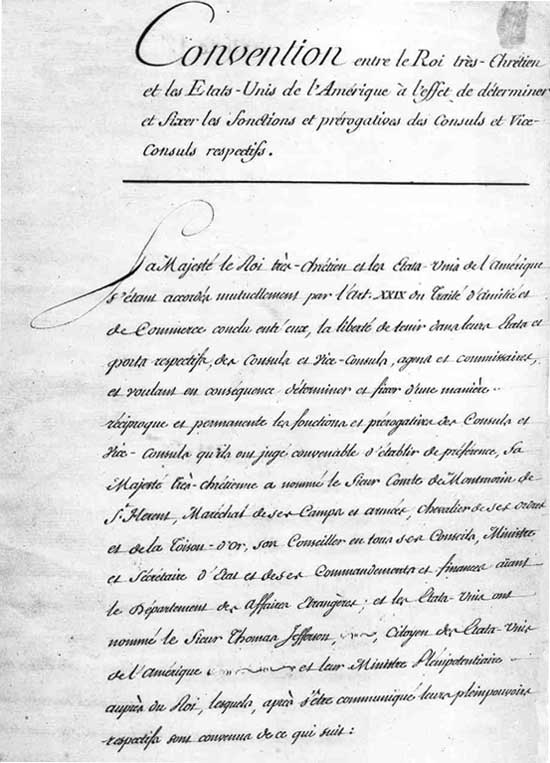 Convention entre le Roi très-Chrétien
et les Etats-Unis de l'Amérique à l'effet de déterminer
et fixer les fonctions et prérogatives des Consuls et Vice-
Consuls respectifs.
Sa Majesté le Roi très-Chrétien et les Etats-Unis de l'Amérique
s'étant accordés mutuellement par l'art. XXIX du Traité d'amitié et
de Commerce conclu entr'eux, la liberté de tenir dans leurs Etats et
ports respectifs, des Consuls et Vice-Consuls, agens et commissaires,
et voulant en conséquence déterminer et fixer d'une manière
réciproque et permanente les fonctions et prérogatives des Consuls et
Vice-Consuls qu'ils ont jugé convenable d'établir de préférence, Sa
Majesté très-chrétienne a nommé le Sieur Comte de Montmorin de
St. Herent, Maréchal de ses Camps et armées, Chevalier de ses ordres
et de la Toison-d'Or, son Conseiller en tous ses Conseils, Ministre
et Sécrétaire d'Etat et de ses Commandements et finances aiant
le Département des Affaires Etrangères; et les Etats-Unis ont
nommé le Sieur Thomas Jefferson, citoyen des Etats-Unis
de l'Amérique et leur Ministre Plénipotentiaire
auprès du Roi, lesquels, après s'être communiqué leurs pleinpouvoirs
respectifs sont convenus de ce qui suit: